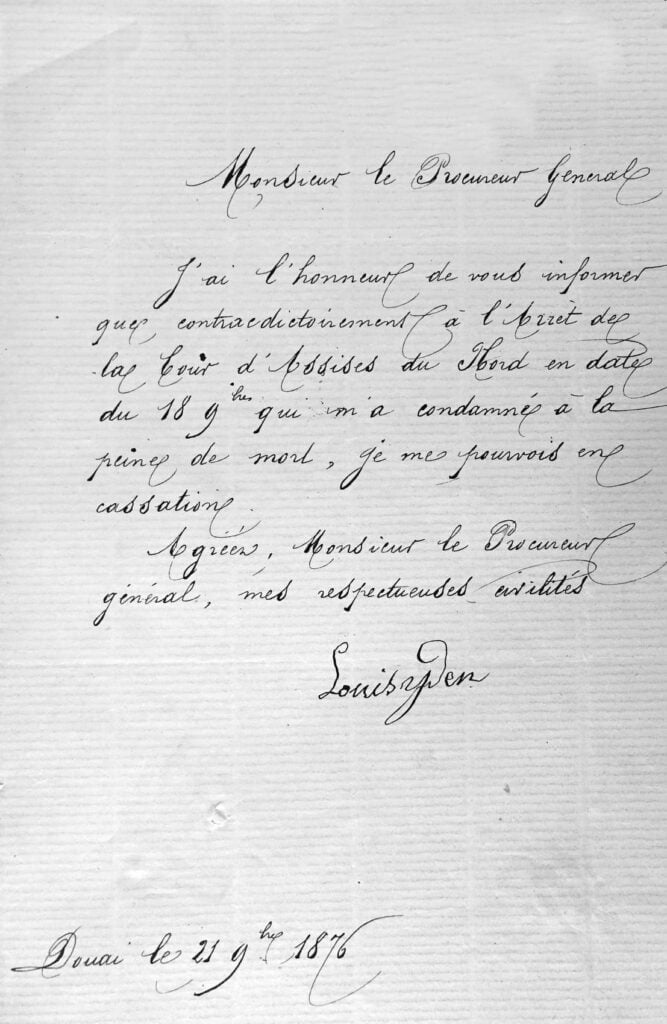 Monsieur le Procureur Général
J'ai l'honneur de vous informer
que, contradictoirement à l'Arrêt de
la Cour d'Assises du Nord en date
du 18 9bre qui m'a condamné à la
peine de mort, je me pourvois en
cassation.
Agréez, Monsieur le Procureur
général, mes respectueuses civilités
Louis
Douai le 21 9bre 1876